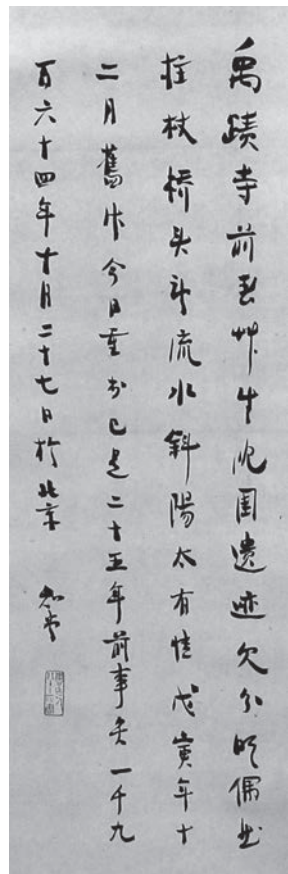 禹蹟寺前春艸生沈園遺迹欠分明偶然
拄杖桥头望流水斜陽太有情戊寅年十
二月舊作今日重书已是二十五年前事矣一千九
百六十四年十月二十七日於北京 知堂